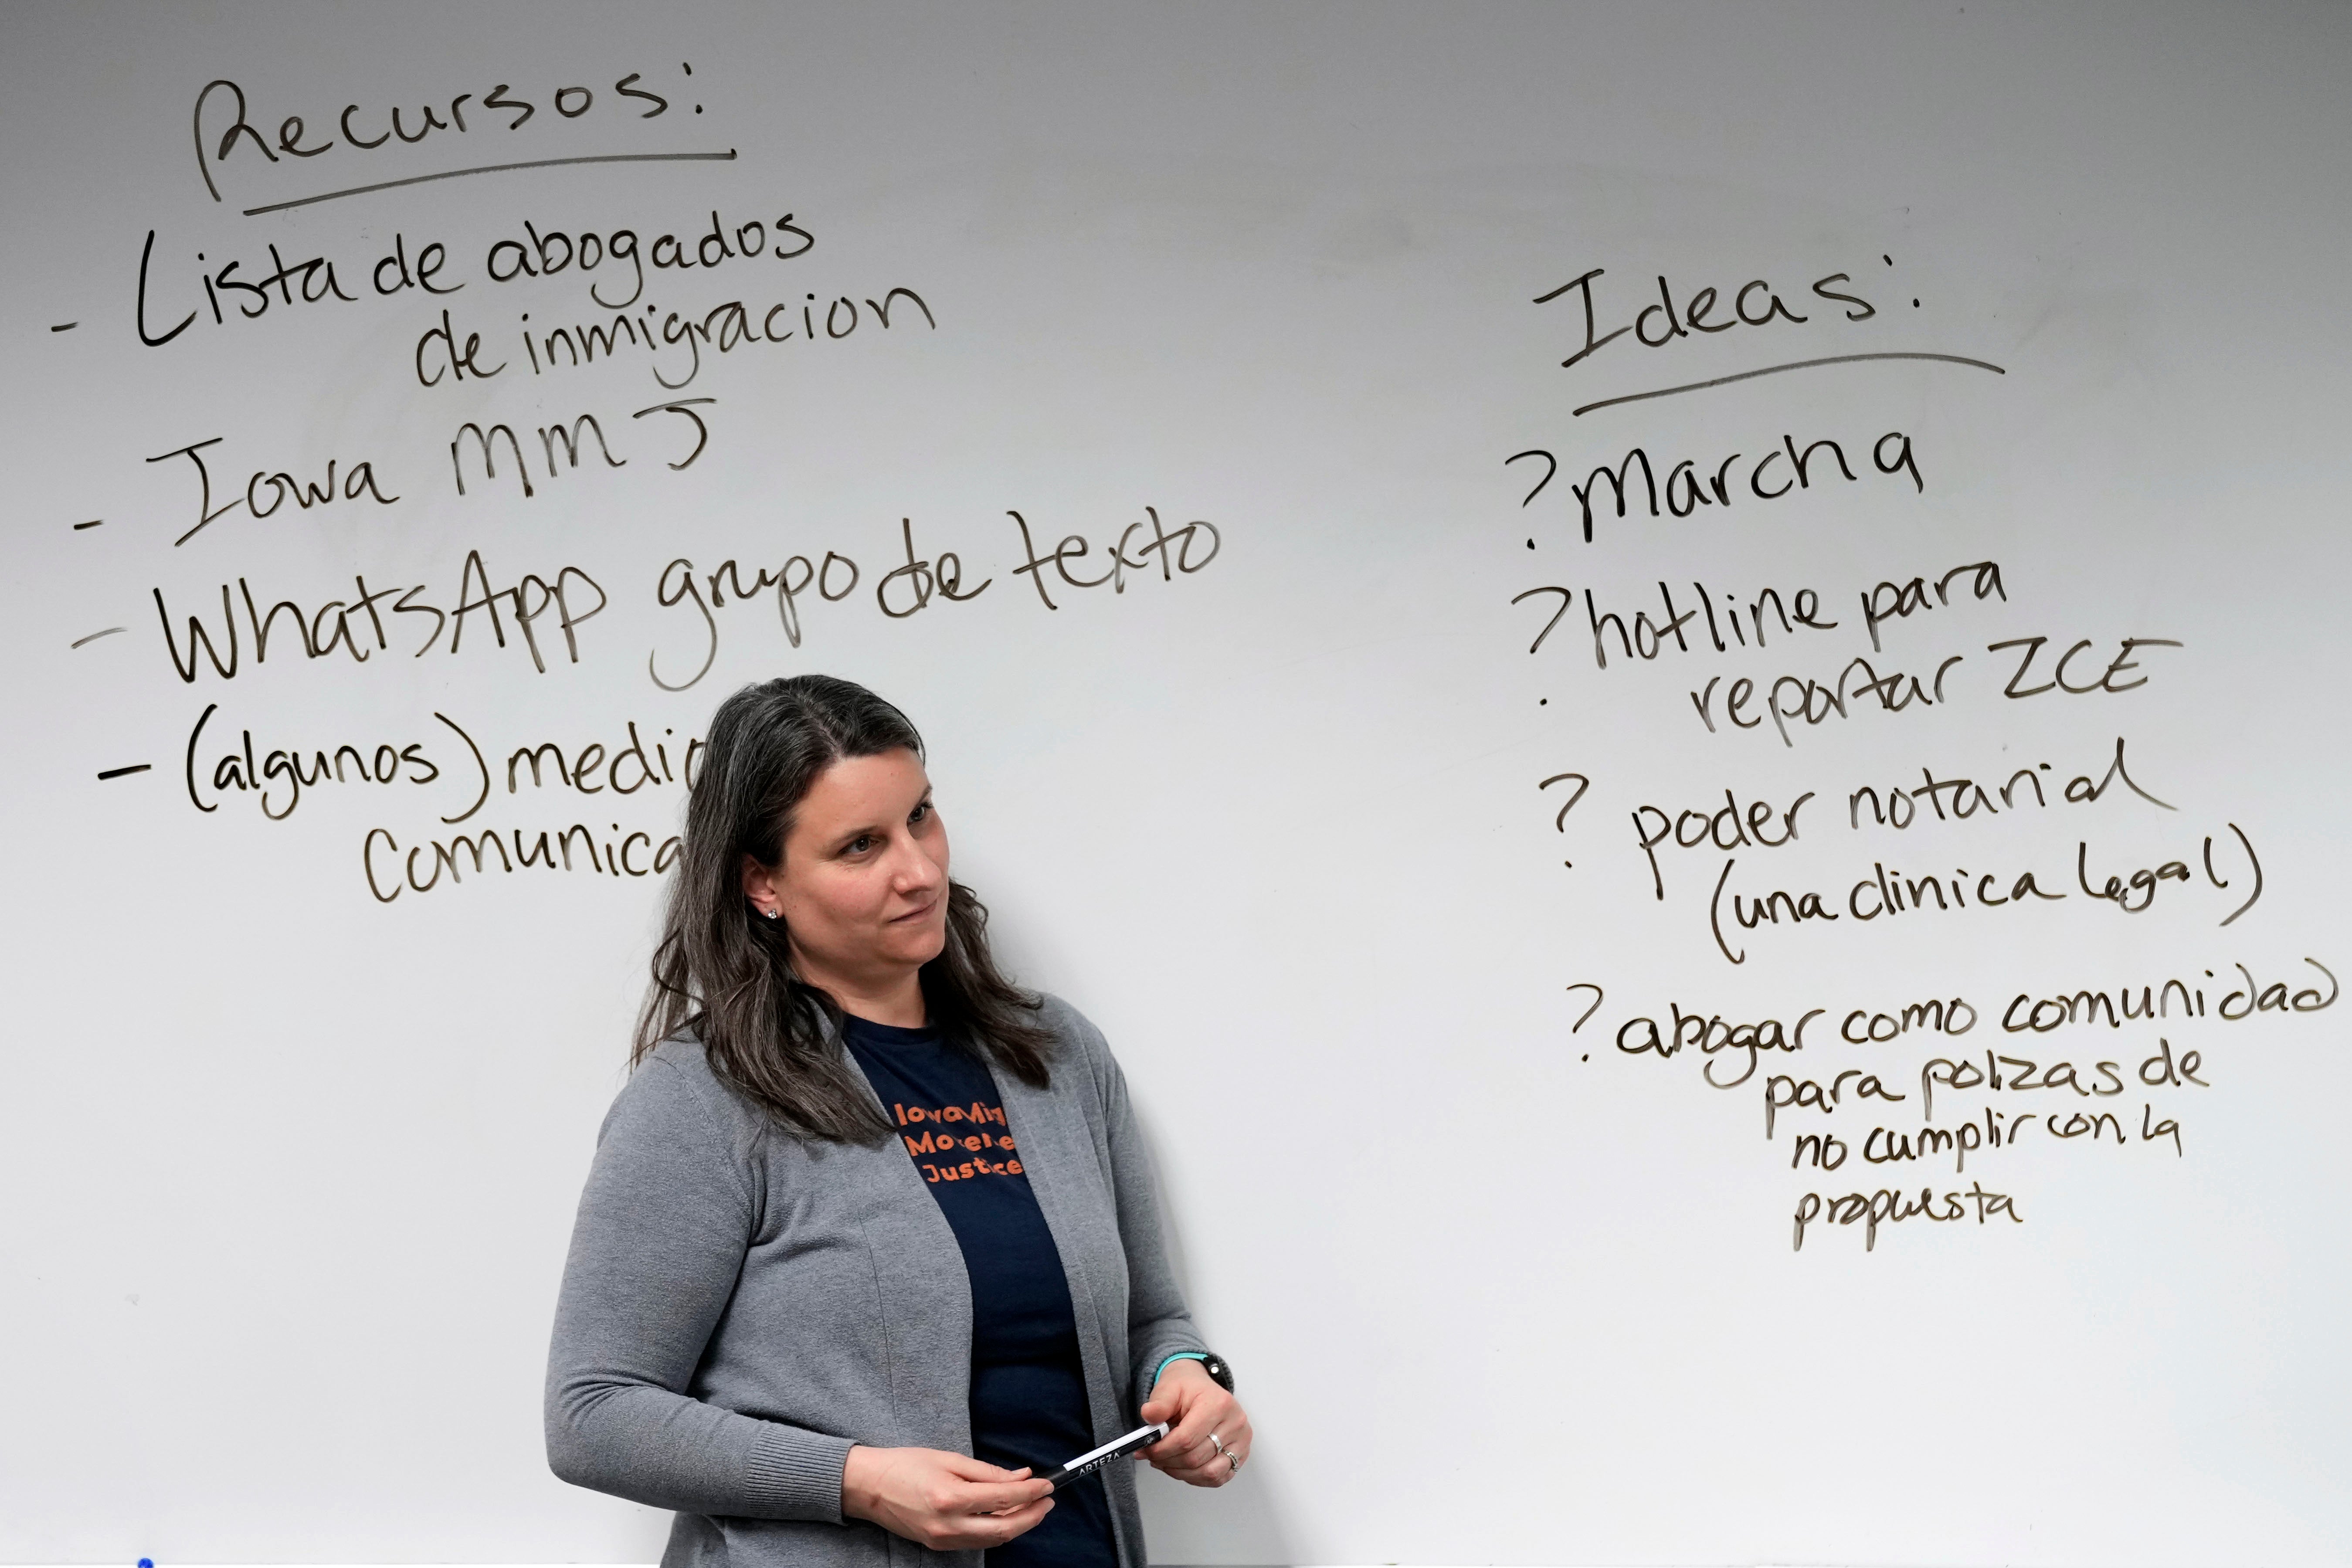 Recursos:
- Lista de abogados
de inmigracion
- Iowa MMJ
- WhatsApp grupo de texto
- (algunos)
Ideas:
? Marcha
? hotline para
reportar ICE
? poder notarial
(una clinica legal)
? abogar como comunidad
para polizas de
no cumplir con la
propuesta
Iowa
Justice
ARTEZA